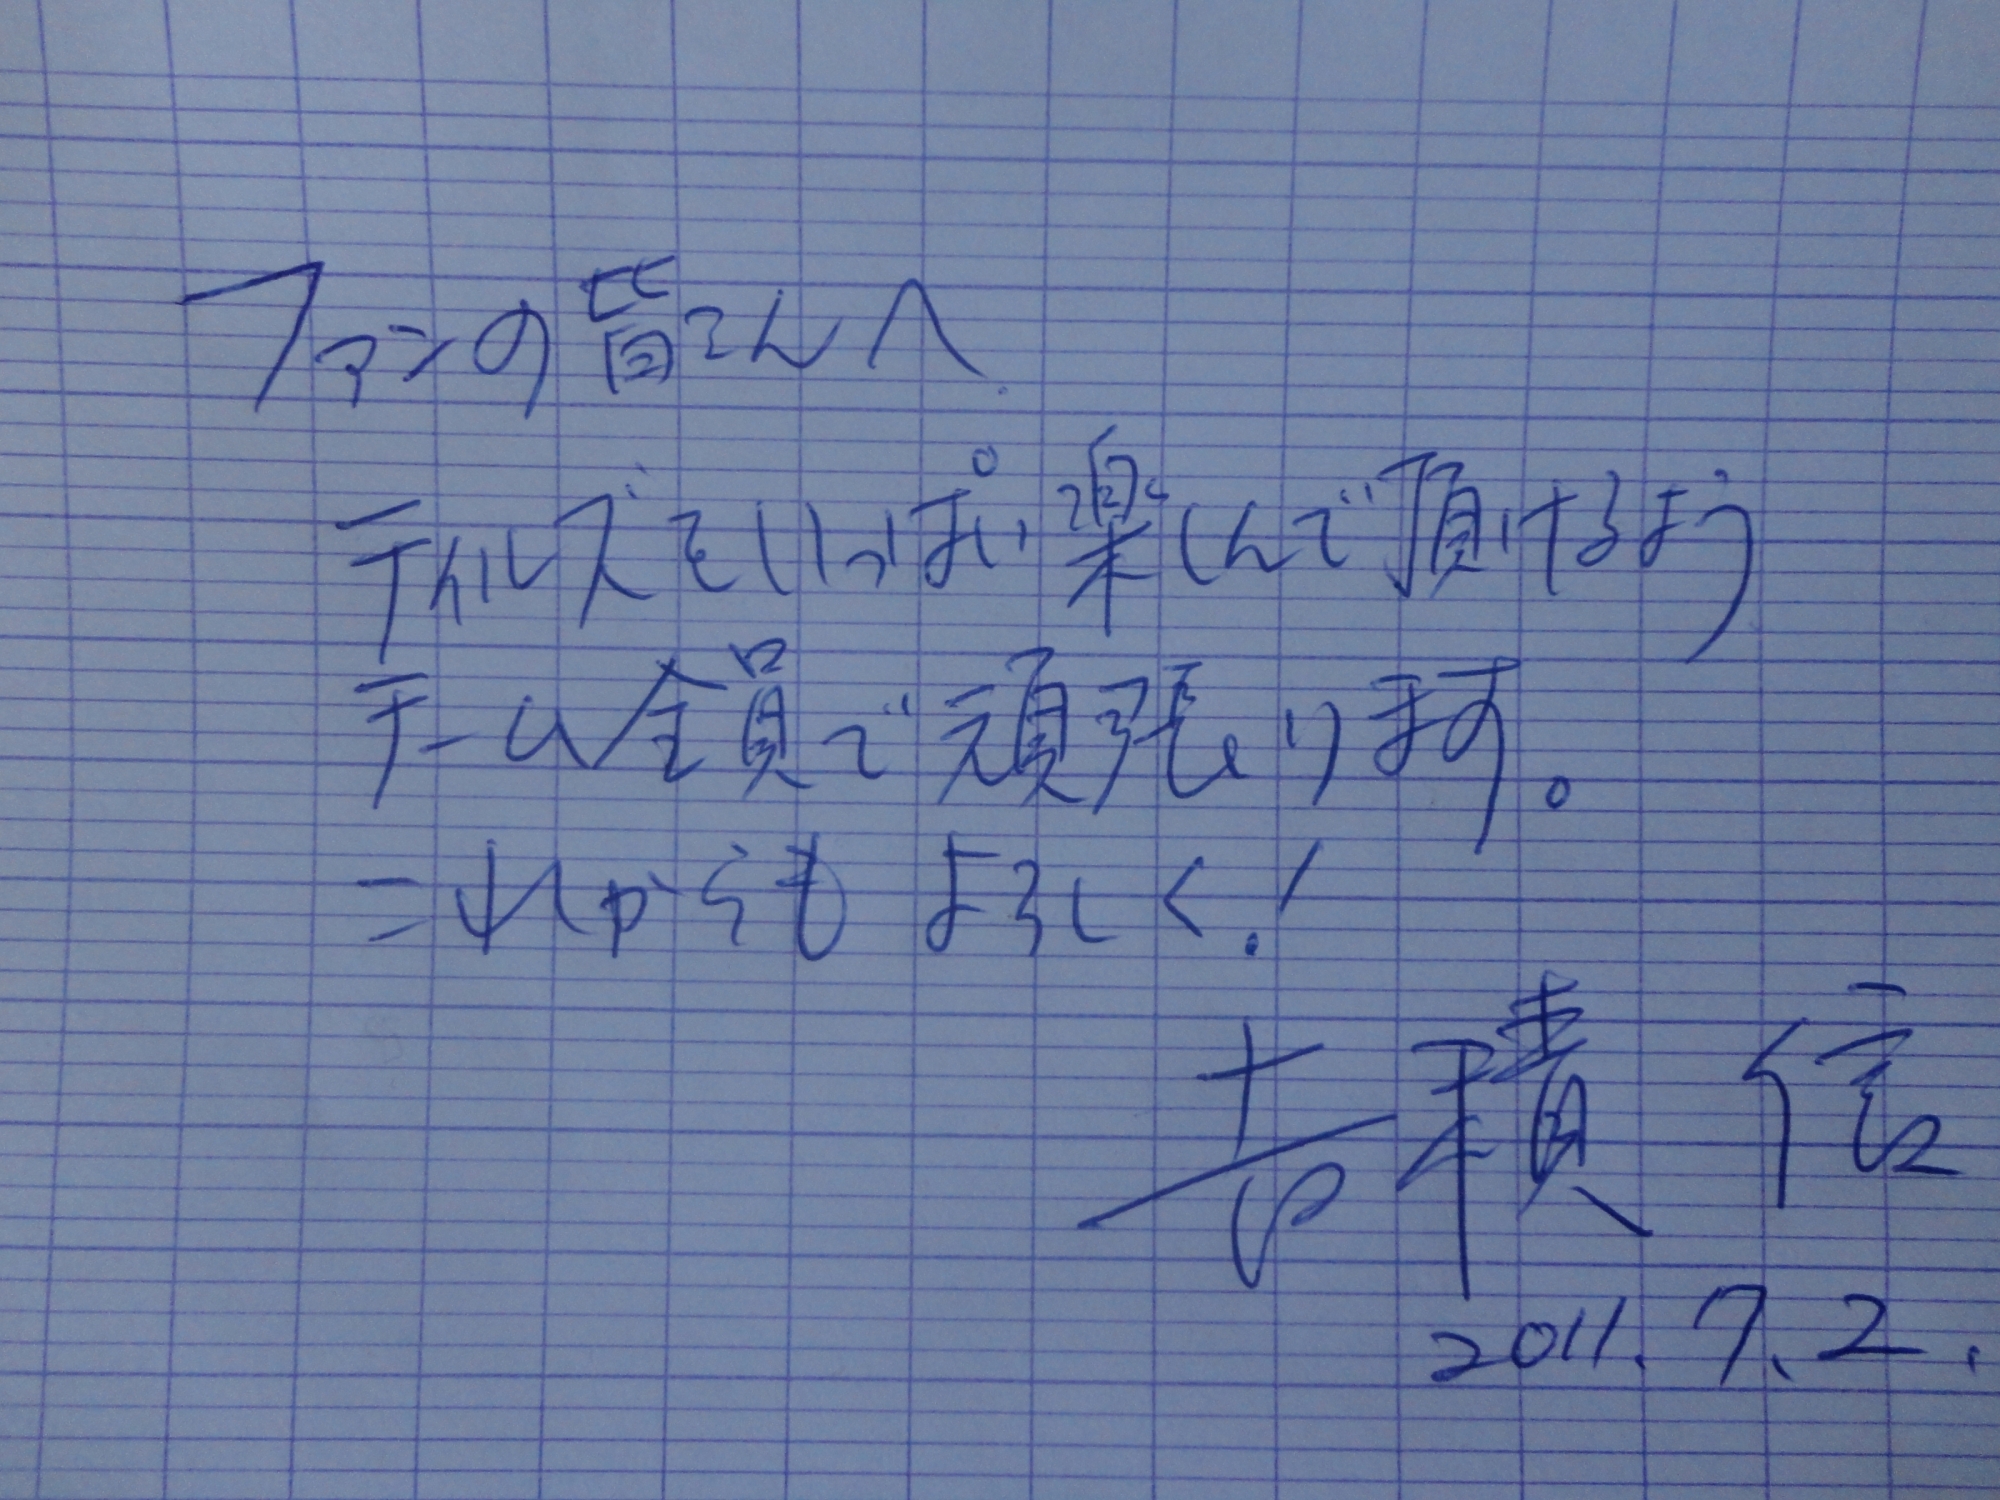 ファンの皆さんへ
テイルズをいっぱい楽しんで頂けるよう
チーム全員で頑張ります。
これからもよろしく!
吉積 信
2011.7.2.